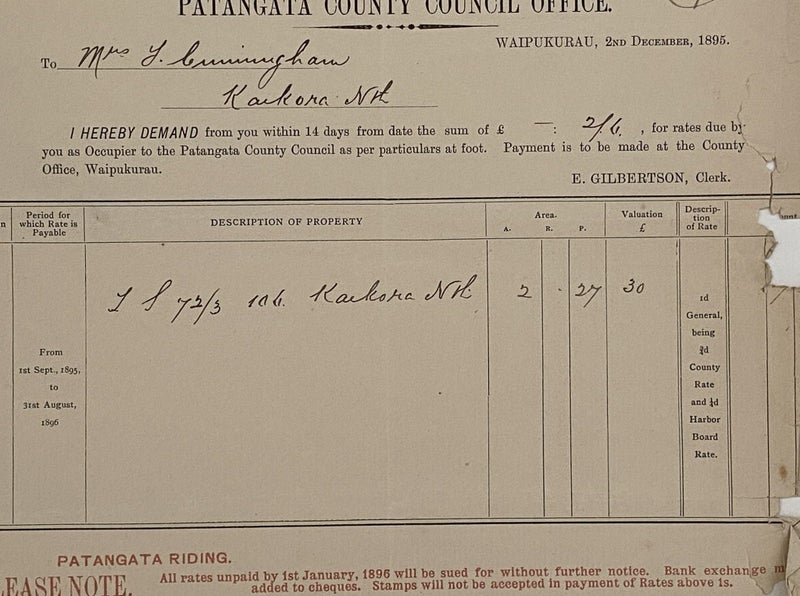 PATANGATA COUNTY COUNCIL OFFICE.
WAIPUKURAU, 2ND DECEMBER, 1895.
To Mrs J. Cunningham
Kaikora Nth
I HEREBY DEMAND from you within 14 days from date the sum of £ —: 2/6. , for rates due by
you as Occupier to the Patangata County Council as per particulars at foot. Payment is to be made at the County
Office, Waipukurau.
E. GILBERTSON, Clerk.
Period for
which Rate is
Payable
DESCRIPTION OF PROPERTY
Area.
A. R. P.
Valuation
£
Descrip-
tion
of Rate
72/3 106. Kaikora Nth. 2 . 27 30
From
1st Sept., 1895,
to
31st August,
1896
1d
General,
being
¾d
County
Rate
and ¼d
Harbor
Board
Rate.
PATANGATA RIDING.
LEASE NOTE.
All rates unpaid by 1st January, 1896 will be sued for without further notice. Bank exchange m
added to cheques. Stamps will not be accepted in payment of Rates above 1s.